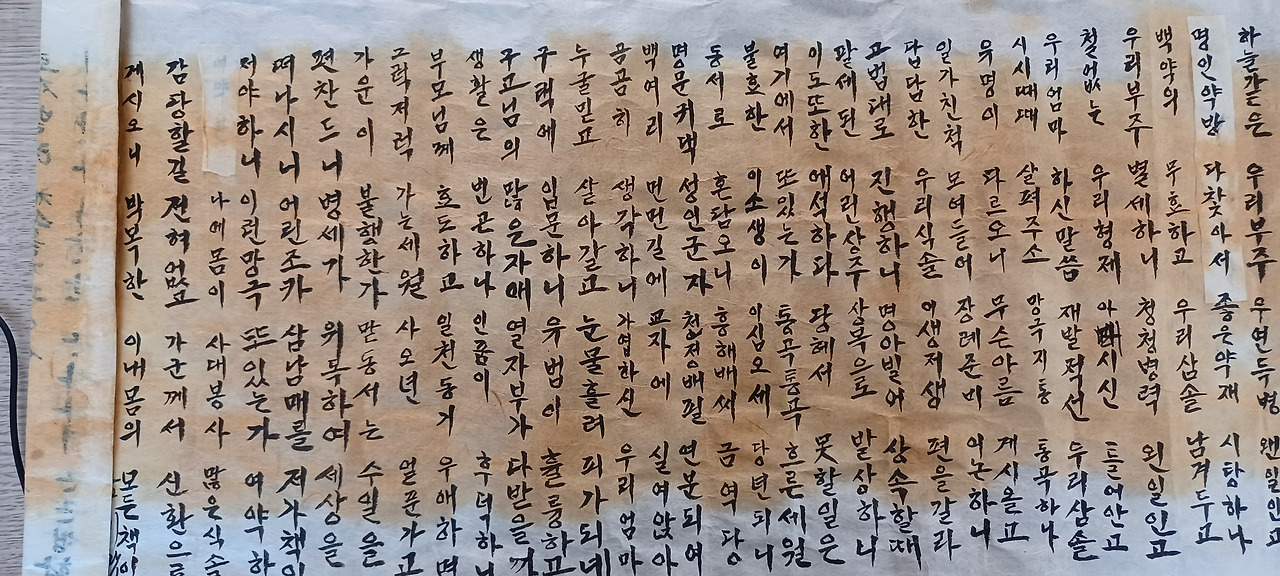 하늘가튼 우리부주 우연두병 왠일인고
명인약방 다찾아서 좋은약재 시탕하나
백약의 무효하고 우리삼솔 남겨두고
우리부주 별세하니 청청벽력 왼일인고
철어없는 우리형제 시신 틀어안고
우리엄마 하신말씀 재발적선 우리삼솔
시시때때 살펴주소 망극지통 통곡하나
유명이 다르오니 무순아름 게시올고
일가친척 모여들어 장례준비 의논하니
답답한 우리식솔 이생저생 편을갈라
교법대로 진행하니 명아빌어 상속할때
팔세된 어린상주 상복으로 발상하니
이도또한 애석하다 당혜서 못할일은
여기에서 또있는가 통곡통곡 흐른세월
불효한 이소생이 이십오세 당년되니
동서로 혼담오니 흥해배씨 금역당
명문귀댁 성인군자 천정배필 연분되여
백여리 먼먼길에 교자에 실여앉아
곰곰히 생각하니 가엽하신 우리엄마
누굴믿고 살아갈고 눈물흘러 피가되네
구택에 입문하니 유법이 훌륭하고
구고님의 많은자애 열자부가 다반을까
생활은 빈곤하나 인품이 후덕하니
부모님께 효도하고 일천동기 우애하며
그럭저럭 가는세월 사오년 얼푼가고
가운이 불행한가 맏동서는 수일을
편찬드니 병세가 위독하여 세상을
떠나시니 어린조카 삼남매를 저가책이
저야하니 이런망극 또있는가 여약하
나에몸이 사대봉사 많은식솔
감당할길 전혀없고 가군께서 신환으로
게시오니 박복한 이내몸의 모든책이